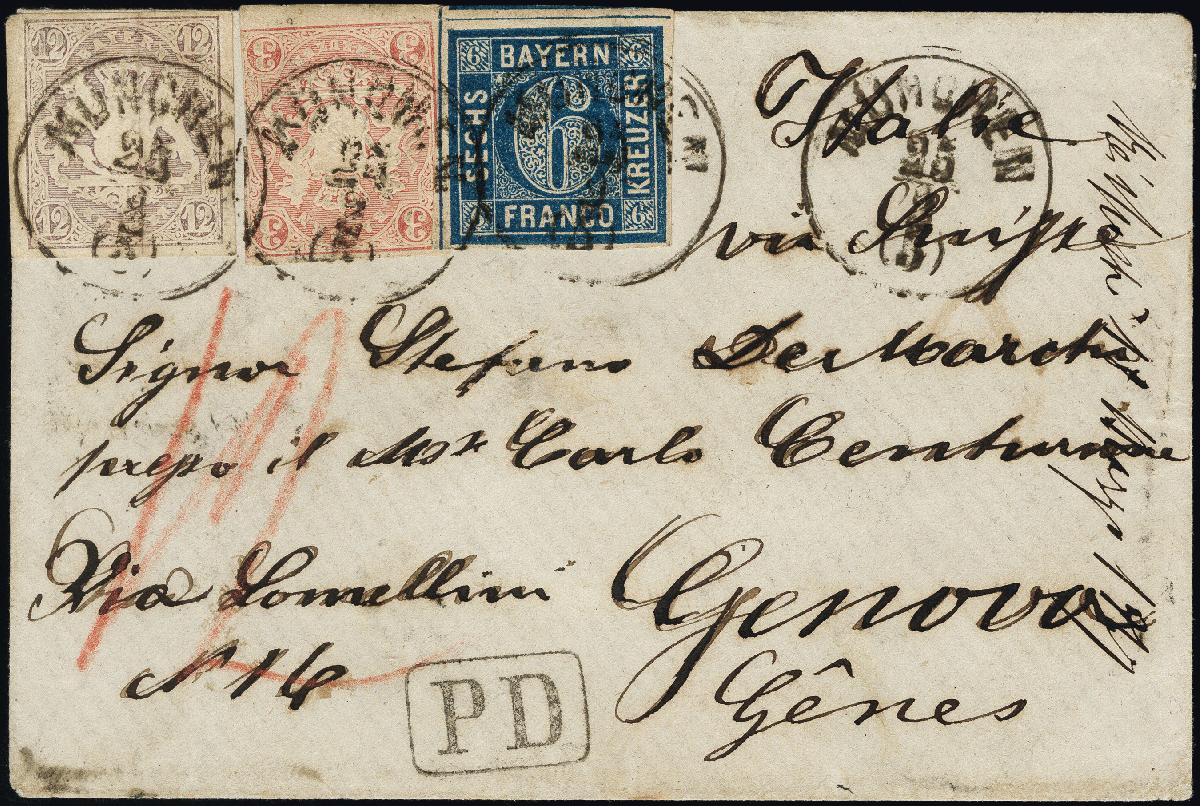 12 12
12 12
3 3
3 3
6 BAYERN 6
SECHS 6 KREUZER
6 FRANCO 6
MÜNCHEN
MÜNCHEN
MÜNCHEN
MÜNCHEN
25
(3)
Italie
via Suisse
Signor Stefano De Marchi
presso il Mse Carlo Centurione
Via Lomellini
N 16
Genova
Gênes
PD